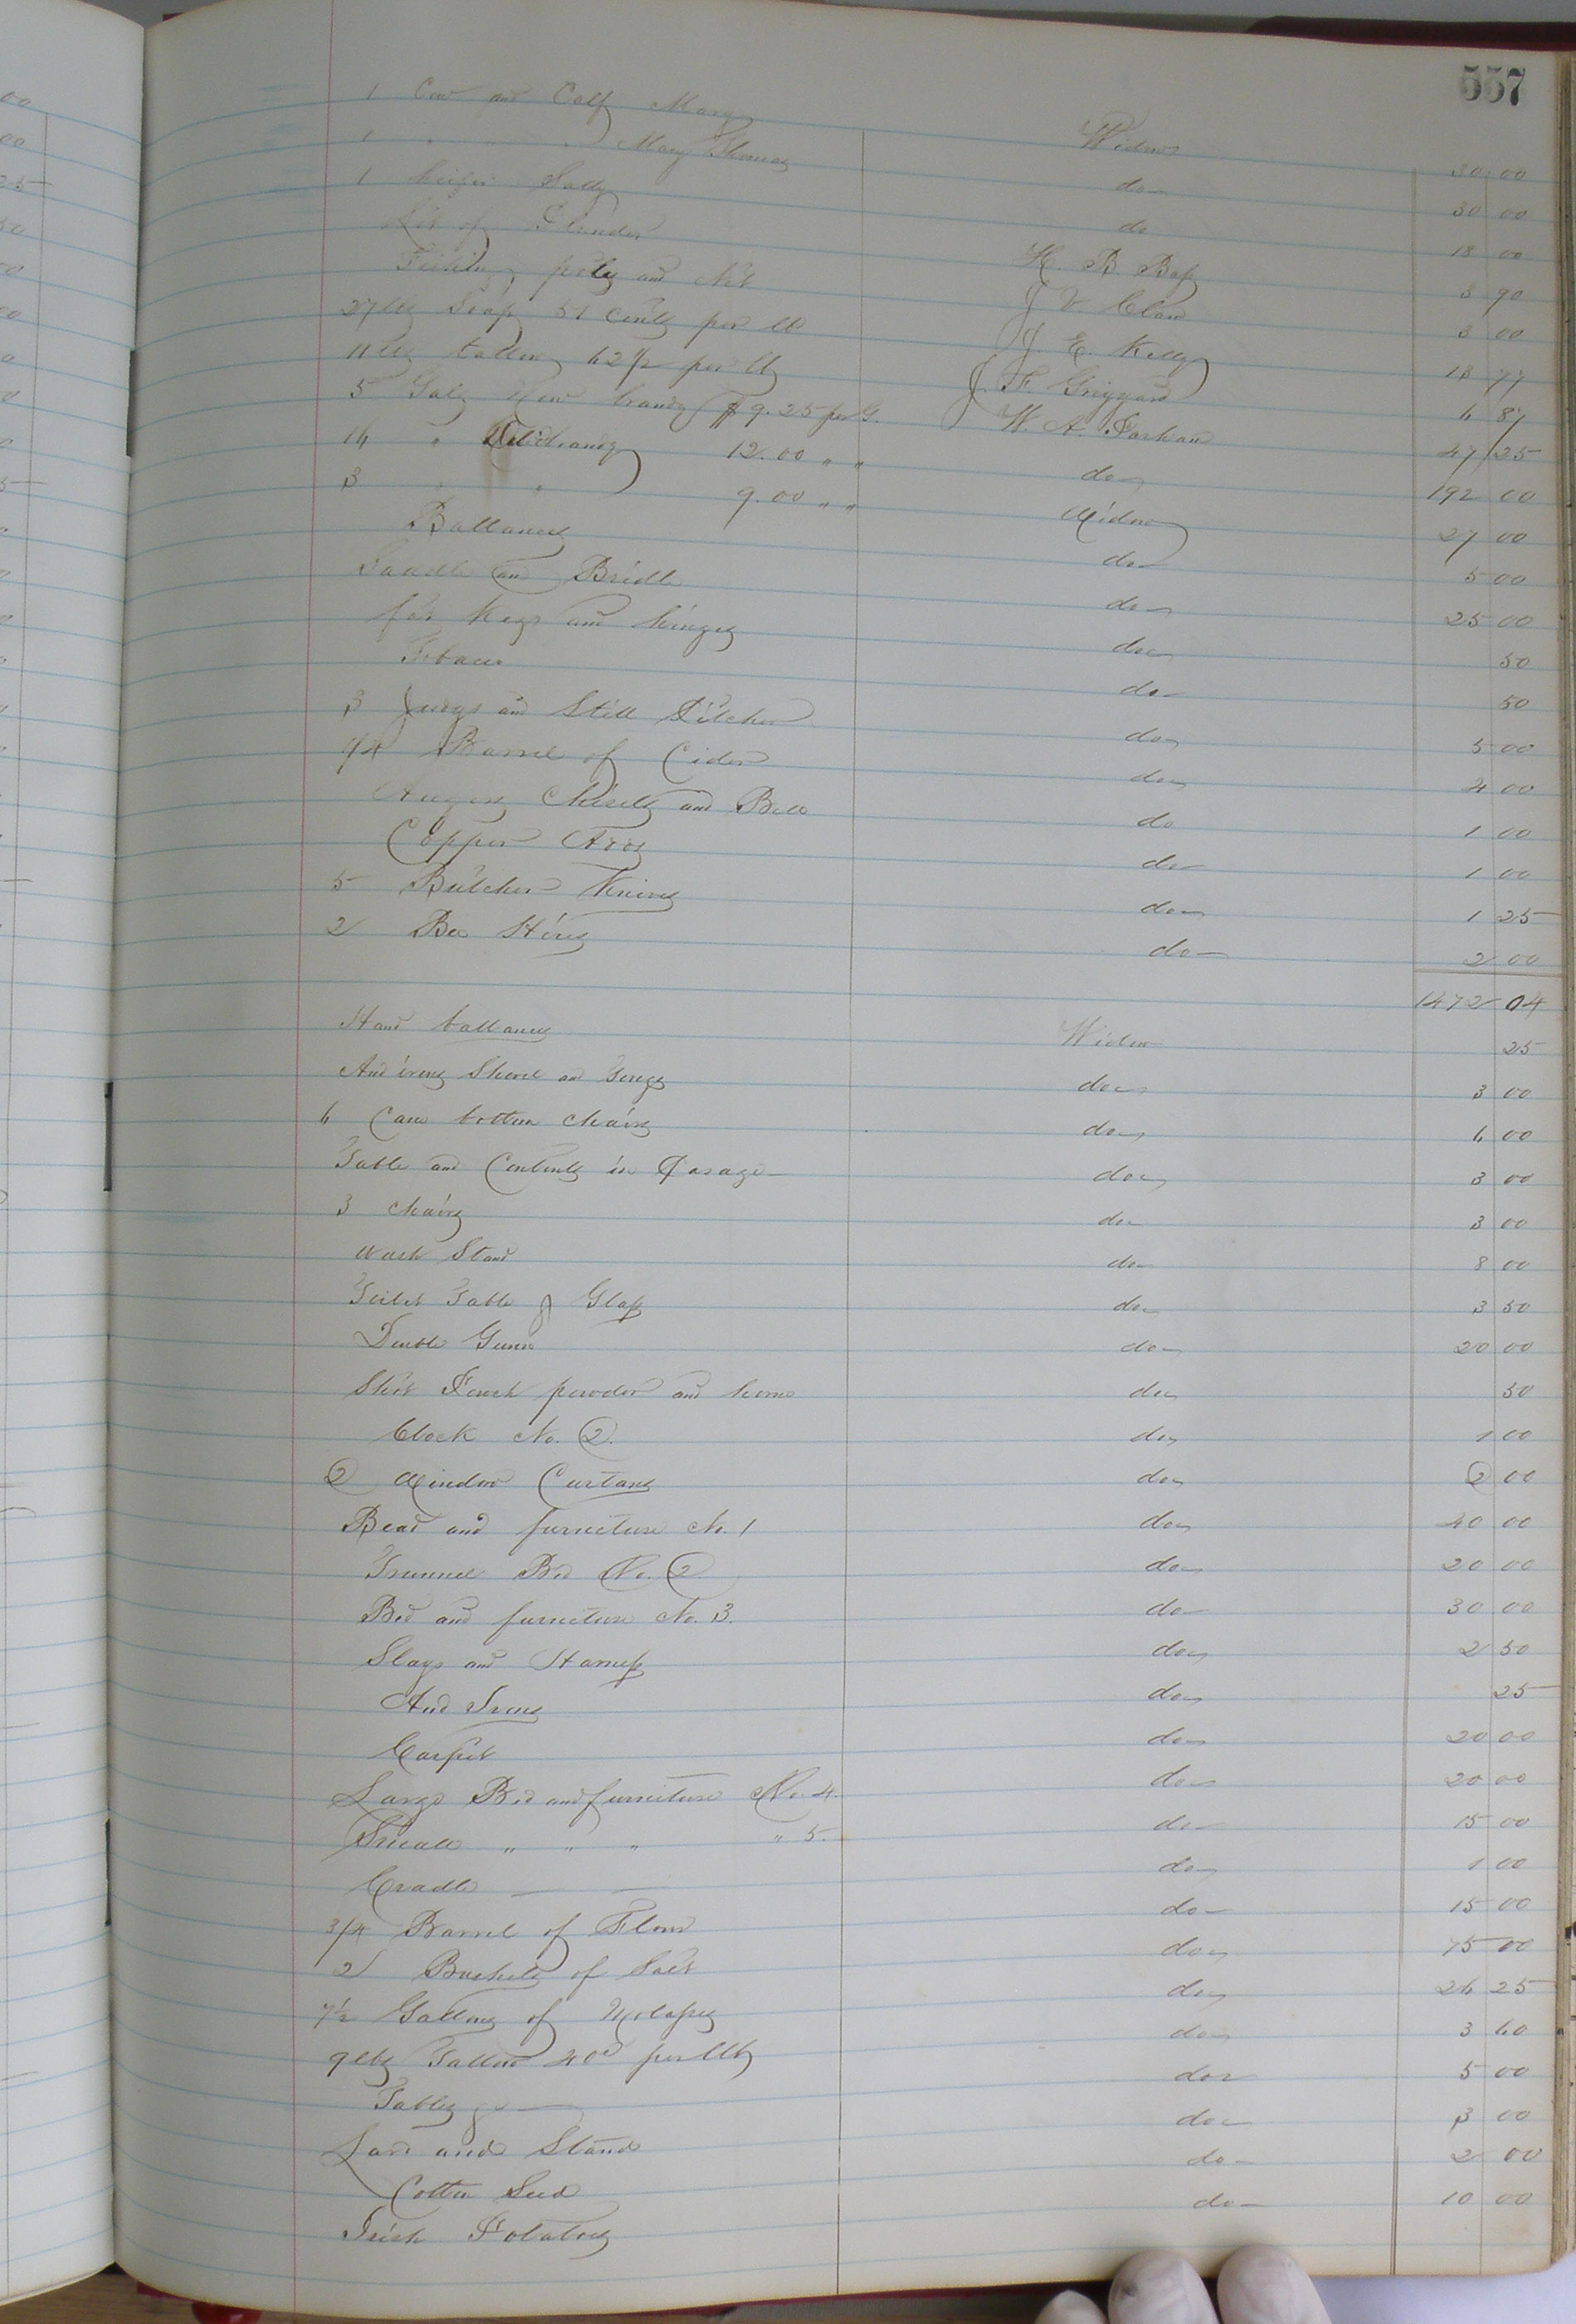 557
1 Cow and Calf Mary Widow 30 00
1 " " " Mary Thomas do 30 00
1 heifer Sally do 18 00
Lot of H. B. Bass 3 90
Fishing poles and Net J. V. 3 00
27 lbs Soap 51 Cents per lb J. E. Kelly 13 77
11 lbs tallow 62 1/2 per lb J. F. Griggard 6 87
5 Gals New brandy $9.25 per G. W. A. Parham 47 25
16 " Old brandy 12.00 " " do 192 00
3 " " 9.00 " " Widow 27 00
Ballances do 5 00
Saddle and Bridle do 25 00
for Kegs and hinges do 50
Tobacco do 50
3 Jugs and Still Pitcher do 5 00
1/4 Barrel of Cider do 4 00
Augers Chisels and Bell do 1 00
Copper do 1 00
5 Butcher Knives do 1 25
2 Bee Hives do 2 00
1472 04
Hand ballances Widow 25
And irons Shovel and Tongs do 3 00
6 Cane bottom chairs do 6 00
Table and Contents in Pasage do 3 00
3 chairs do 3 00
Wash Stand do 8 00
Toilet Table & Glass do 3 50
Double Gunn do 20 00
Shot Pouch powder and horne do 50
Clock No. 2. do 1 00
2 Window Curtans do 2 00
Bead and furniture No. 1 do 40 00
Trunnel Bed No. 2 do 20 00
Bed and furniture No. 3. do 30 00
Slays and Harness do 2 50
And Irons do 25
Carpet do 20 00
Large Bed and furniture No. 4. do 20 00
Small " " " " 5. do 15 00
Cradle do 1 00
3/4 Barrel of Flour do 15 00
2 Bushels of Salt do 75 00
7 1/2 Gallons of Molasses do 26 25
9 lbs Tallow 40c per lb do 3 60
Tables do 5 00
Lard and Stand do 3 00
Cotton Seed do 2 00
Irish Potatoes do 10 00